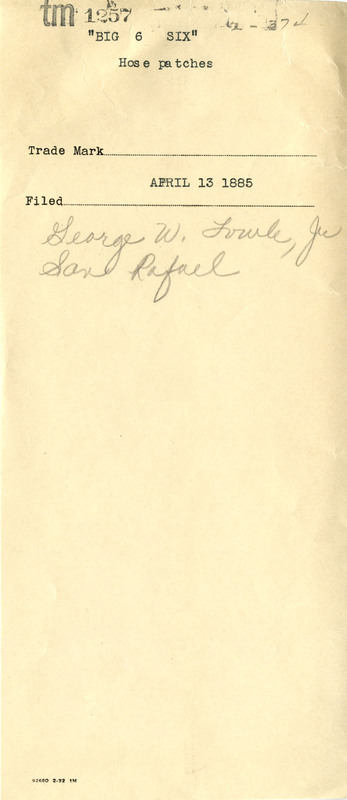 tm 1257
"BIG 6 SIX"
Hose patches
Trade Mark
APRIL 13 1885
Filed
George W. Fowle, Jr
San Rafael
92680 2-32 1M